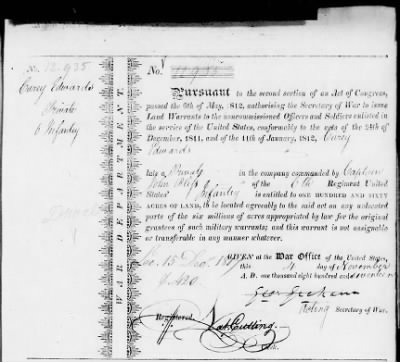 No. 12.935
Carey Edwards
Private
6 Infantry
WAR DEPARTMENT.
No. 12 935
Pursuant to the second section of an Act of Congress,
passed the 6th of May, 1812, authorising the Secretary of War to issue
Land Warrants to the noncommissioned Officers and Soldiers enlisted in
the service of the United States, conformably to the acts of the 24th of
December, 1811, and of the 11th of January, 1812, Carey
Edwards
late a Private in the company commanded by Captain
John of the 6th Regiment United
States' Infantry is entitled to ONE HUNDRED AND SIXTY
ACRES OF LAND, to be located agreeably to the said act on any unlocated
parts of the six millions of acres appropriated by law for the original
grantees of such military warrants; and this warrant is not assignable
or transferable in any manner whatever.
GIVEN at the War Office of the United States,
this day of November
A. D. one thousand eight hundred and seventeen
15 Dec. 1817
Geo: Graham
Acting Secretary of War.
Registered.
Cutting
Clk.